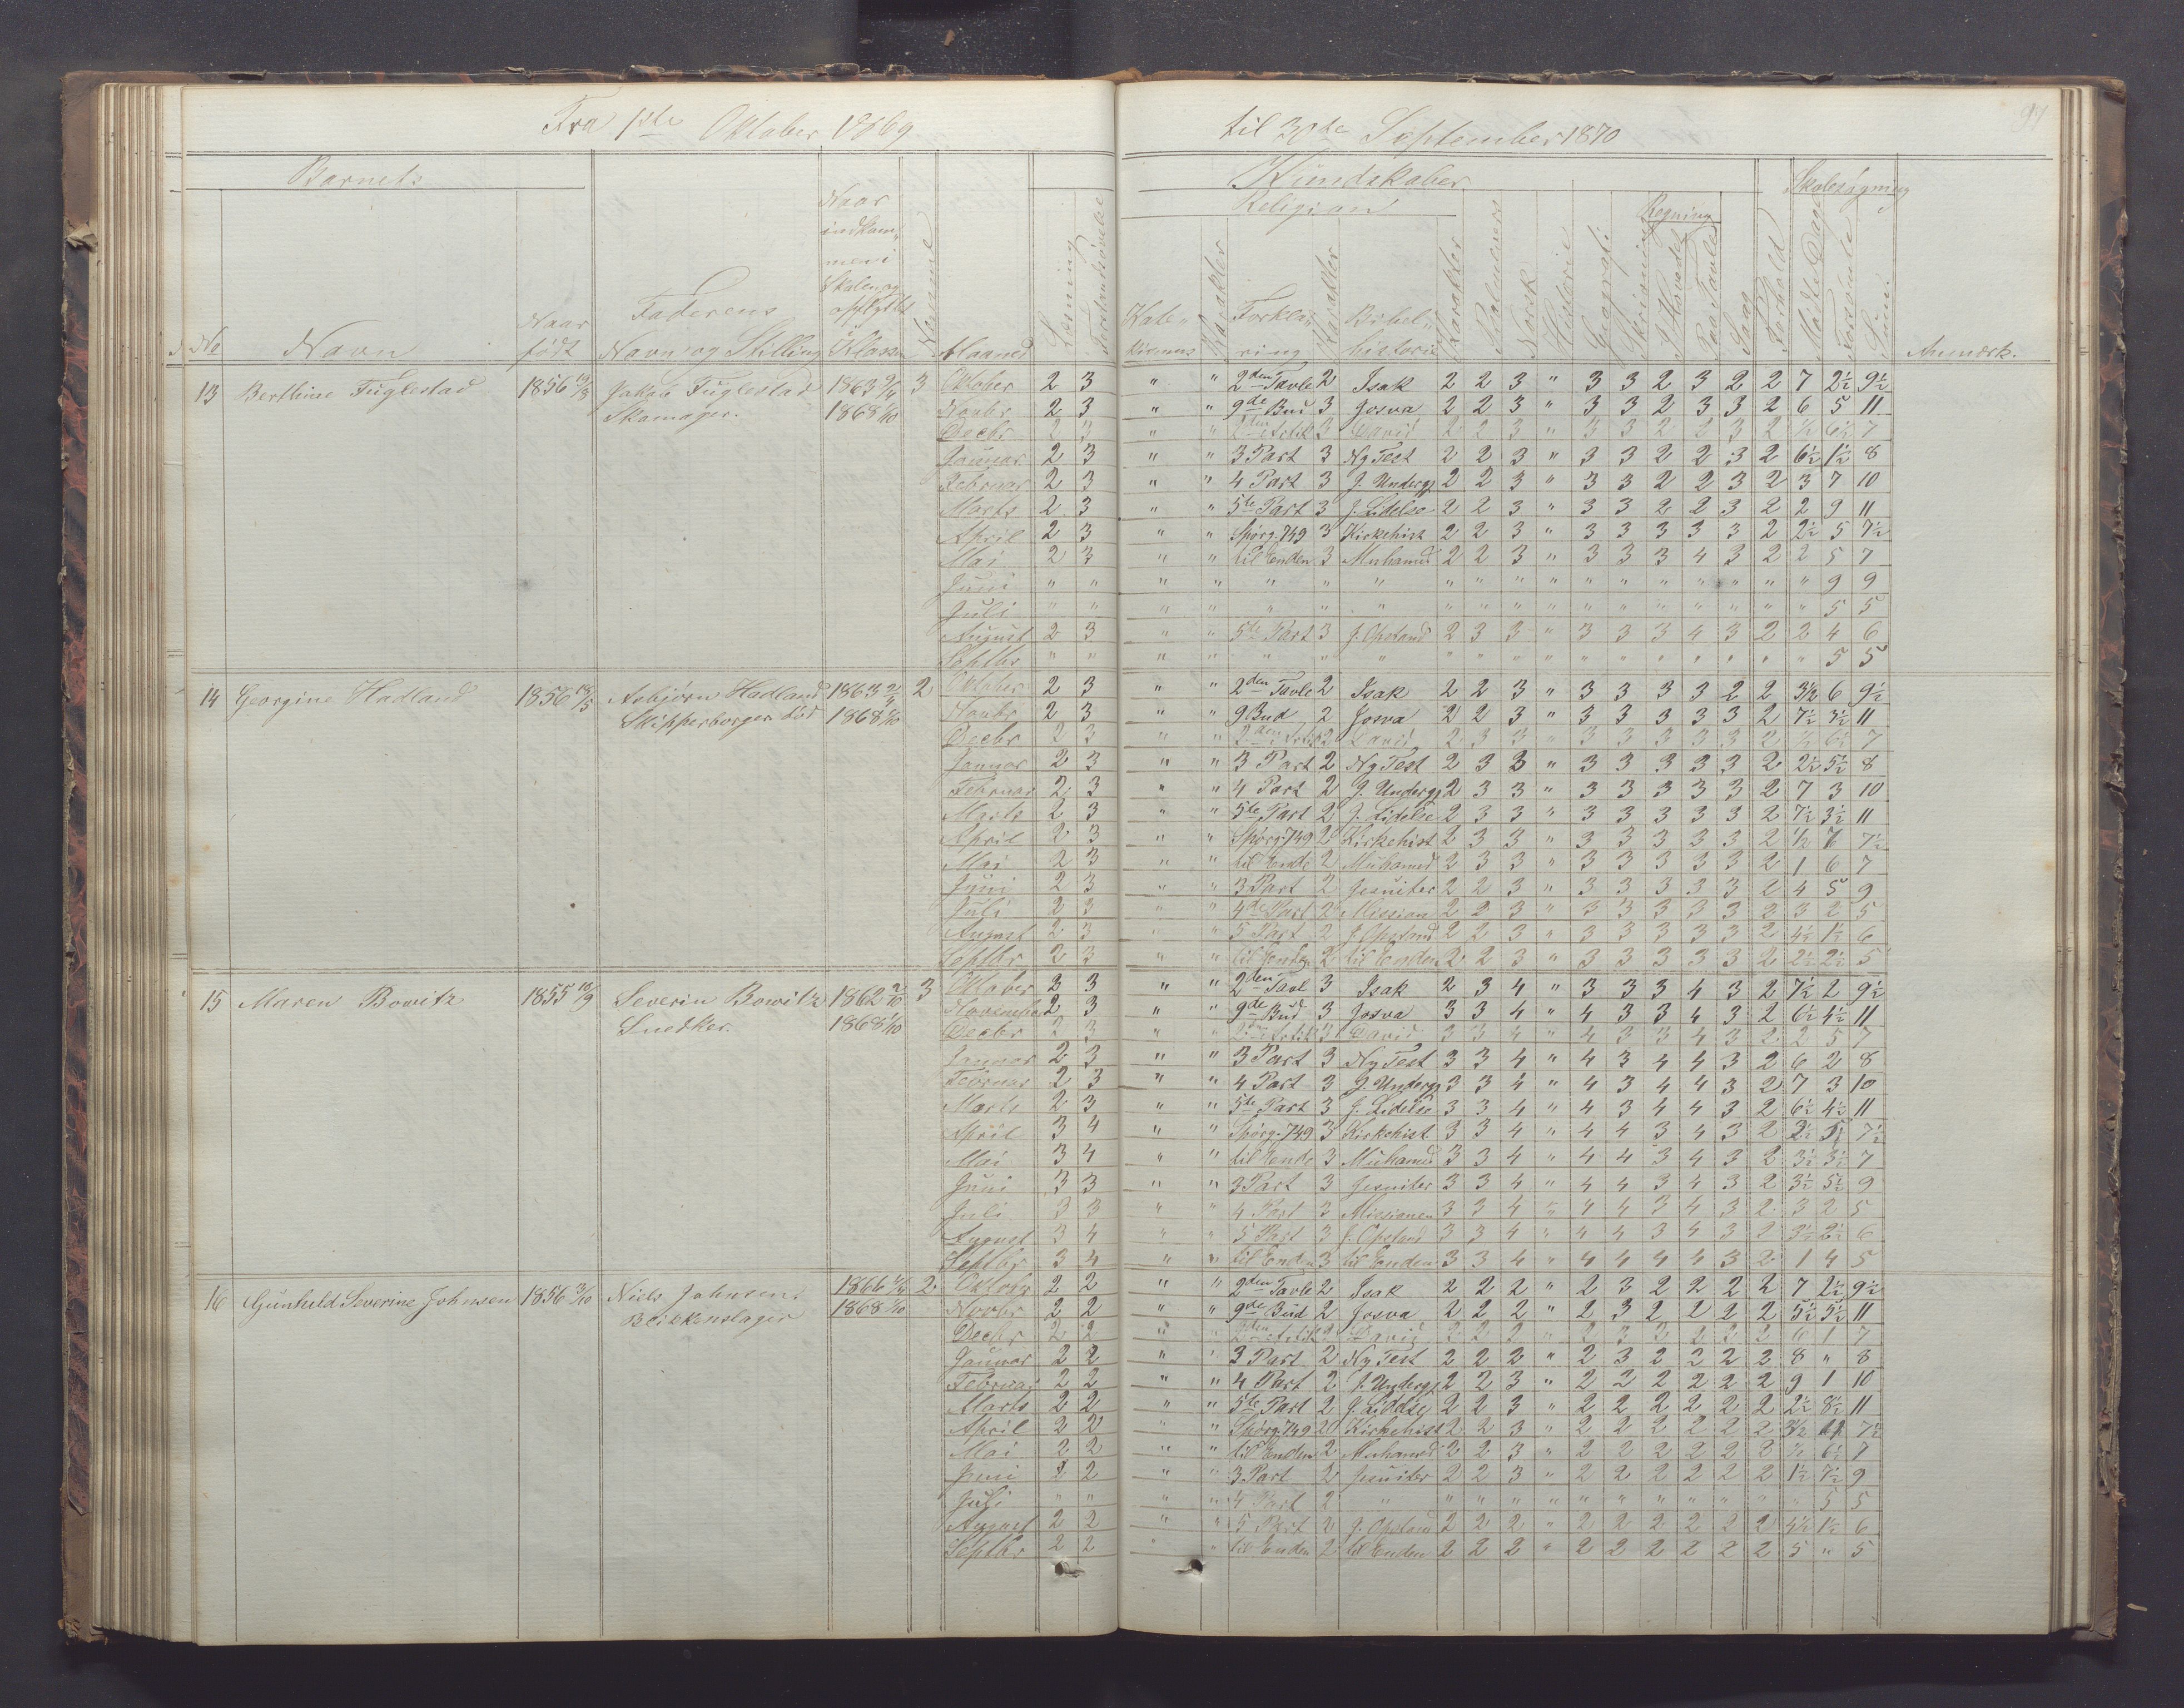 Fra 1ste Oktober 1869 til 30te September 1870
94
Barnets
Kundskaber
Skolesøgning
Religion
Regning
No Navn Naar født Faderens Navn og Stilling Naar indkommen i Skolen og opflyttet i Klassen Maaned Læsning
Kate- kismus Karakter Forkla- ring Karakter Bibel- historie Karakter Norsk Historie Geografi Skrivning I Hovedet Paa Tavle Sang Forhold Mødte Dage Forsømte Anmærk.
13 Berthine Fuglestad 1856 Jakob Fuglestad 1863 3 Oktober 2 3 " " 2den Tavle 2 Isak 2 2 3 " 3 3 2 3 2 2 7 2½ 9½
Skomager. 1868 1/10 Novbr 2 3 " " 9de Bud 3 Josva 2 2 3 " 3 3 2 3 3 2 6 5 11
Decbr 2 3 " " 2den Artik 3 David 2 2 3 " 3 3 2 2 3 2 ½ 6½ 7
Januar 2 3 " " 3 Part 3 Ny Test 2 2 3 " 3 3 2 2 3 2 6½ 1½ 8
Februar 2 3 " " 4 Part 3 J. Undergj 2 2 3 " 3 3 2 2 3 2 3 7 10
Marts 2 3 " " 5te Part 3 J. Lidelse 2 2 3 " 3 3 2 2 3 2 2 9 11
April 2 3 " " Spörg. 749 3 Kirkehist 2 2 3 " 3 3 3 3 3 2 2½ 5 7½
Mai 2 3 " " til Enden 3 Muhamed 2 2 3 " 3 3 3 4 3 2 2 5 7
Juni " " " " " " " " " " " " " " " " " " 9 9
Juli " " " " " " " " " " " " " " " " " " 5 5
August 2 3 " " 5te Part 3 J. Opstand 2 3 3 " 3 3 3 4 3 2 2 4 6
Septbr " " " " " " " " " " " " " " " " " 5 5
14 Georgine Hadland 1856 18/5 Asbjörn Hadland 1863 2 Oktober 2 3 " " 2den Tavle 2 Isak 2 2 3 " 3 3 3 3 2 2 3½ 6 9½
Skipperborger död 1868 1/10 Novbr 2 3 " " 9 Bud 2 Josva 2 2 3 " 3 3 3 3 3 2 7½ 3½ 11
Decbr 2 3 " " 2den Artik 2 David 2 3 3 " 3 3 3 3 3 2 ½ 6½ 7
Januar 2 3 " " 3 Part 2 Ny Test 2 3 3 " 3 3 3 3 3 2 2½ 5½ 8
Februar 2 3 " " 4 Part 2 J. Undergj 2 3 3 " 3 3 3 3 3 2 7 3 10
Marts 2 3 " " 5te Part 2 J. Lidelse 2 3 3 " 3 3 3 3 3 2 7½ 3½ 11
April 2 3 " " Spörg. 749 2 Kirkehist 2 3 3 " 3 3 3 3 3 2 ½ 7 7½
Mai 2 3 " " til Ende 2 Muhamed 2 3 3 " 3 3 3 3 3 2 1 6 7
Juni 2 3 " " 3 Part 2 Jesuiter 2 2 3 " 3 3 3 3 3 2 4 5 9
Juli 2 3 " " 4de Part 2 Mission 2 2 3 " 3 3 3 3 3 2 3 2 5
August 2 3 " " 5 Part 2 J. Opstand 2 2 3 " 3 3 3 3 3 2 4½ 1½ 6
Septbr 2 3 " " til Ende 2 til Enden 2 2 3 " 3 3 3 3 3 2 2½ 2½ 5
15 Maren Bowitz 1855 10/9 Severin Bowitz 1862 3 Oktober 2 3 " " 2den Tavl 3 Isak 2 3 4 " 3 3 3 4 3 2 7½ 2 9½
Snedker. 1868 1/10 November 2 3 " " 9de Bud 3 Josva 3 3 4 " 4 3 3 4 3 2 6½ 4½ 11
Decbr 2 3 " " 2den Artik 3 David 3 3 4 " 4 3 3 4 3 2 2 5 7
Januar 2 3 " " 3 Part 3 Ny Test 3 3 4 " 4 3 4 4 3 2 6 2 8
Februar 2 3 " " 4 Part 3 J. Undergj 3 3 4 " 4 3 4 4 3 2 7 3 10
Marts 2 3 " " 5te Part 3 J. Lidelse 3 3 4 " 4 3 4 4 3 2 6½ 4½ 11
April 3 4 " " Spörg. 749 3 Kirkehist 3 3 4 " 4 4 3 4 3 2 2½ 5 7½
Mai 3 4 " " til Ende 3 Muhamed 3 3 4 " 4 4 3 4 3 2 3½ 3½ 7
Juni 3 3 " " 3 Part 3 Jesuiter 3 3 4 " 4 4 3 4 3 2 3½ 5½ 9
Juli 3 3 " " 4 Part 3 Missionen 3 3 4 " 4 4 3 4 3 2 3 2 5
August 3 4 " " 5 Part 3 J. Opstand 3 3 4 " 4 4 3 4 3 2 3½ 2½ 6
Septbr 3 4 " " til Enden 3 til Enden 3 3 4 " 4 4 4 4 3 2 1 4 5
16 Gunhild Severine Johnsen 1856 3/10 Niels Johnsen. 1866 2 Oktobr 2 2 " " 2den Tavle 2 Isak 2 2 2 " 2 3 2 2 2 2 7 2½ 9½
Blikkenslager 1868 1/10 Novbr 2 2 " " 9de Bud 2 Josva 2 2 2 " 2 3 2 2 2 2 5½ 5½ 11
Decbr 2 2 " " 2den Artik 2 David 2 2 2 " 2 3 2 2 2 2 6 1 7
Januar 2 2 " " 3 Part 2 Ny Test 2 2 2 " 2 3 2 2 2 2 8 " 8
Februar 2 2 " " 4 Part 2 J. Undergj 2 2 3 " 2 2 2 2 2 2 9 1 10
Marts 2 2 " " 5te Part 2 J. Lidelse 2 2 3 " 2 2 2 2 2 2 2½ 8½ 11
April 2 2 " " Spörg. 749 2 Kirkehist 2 2 3 " 2 2 2 2 2 2 3½ 4 7½
Mai 2 2 " " til Enden 2 Muhamed 2 2 3 " 2 2 2 2 2 2 ½ 6½ 7
Juni 2 2 " " 3 Part 2 Jesuiter 2 2 3 " 2 2 2 2 2 2 1½ 7½ 9
Juli " " " " 4 Part 2 " " " " " " " " " " " " 5 5
August 2 2 " " 5 Part 2 J. Opstand 2 2 2 " 2 2 2 2 2 2 4½ 1½ 6
Septbr 2 2 " " til Enden 2 til Enden 2 2 2 " 2 2 2 2 2 2 5 " 5